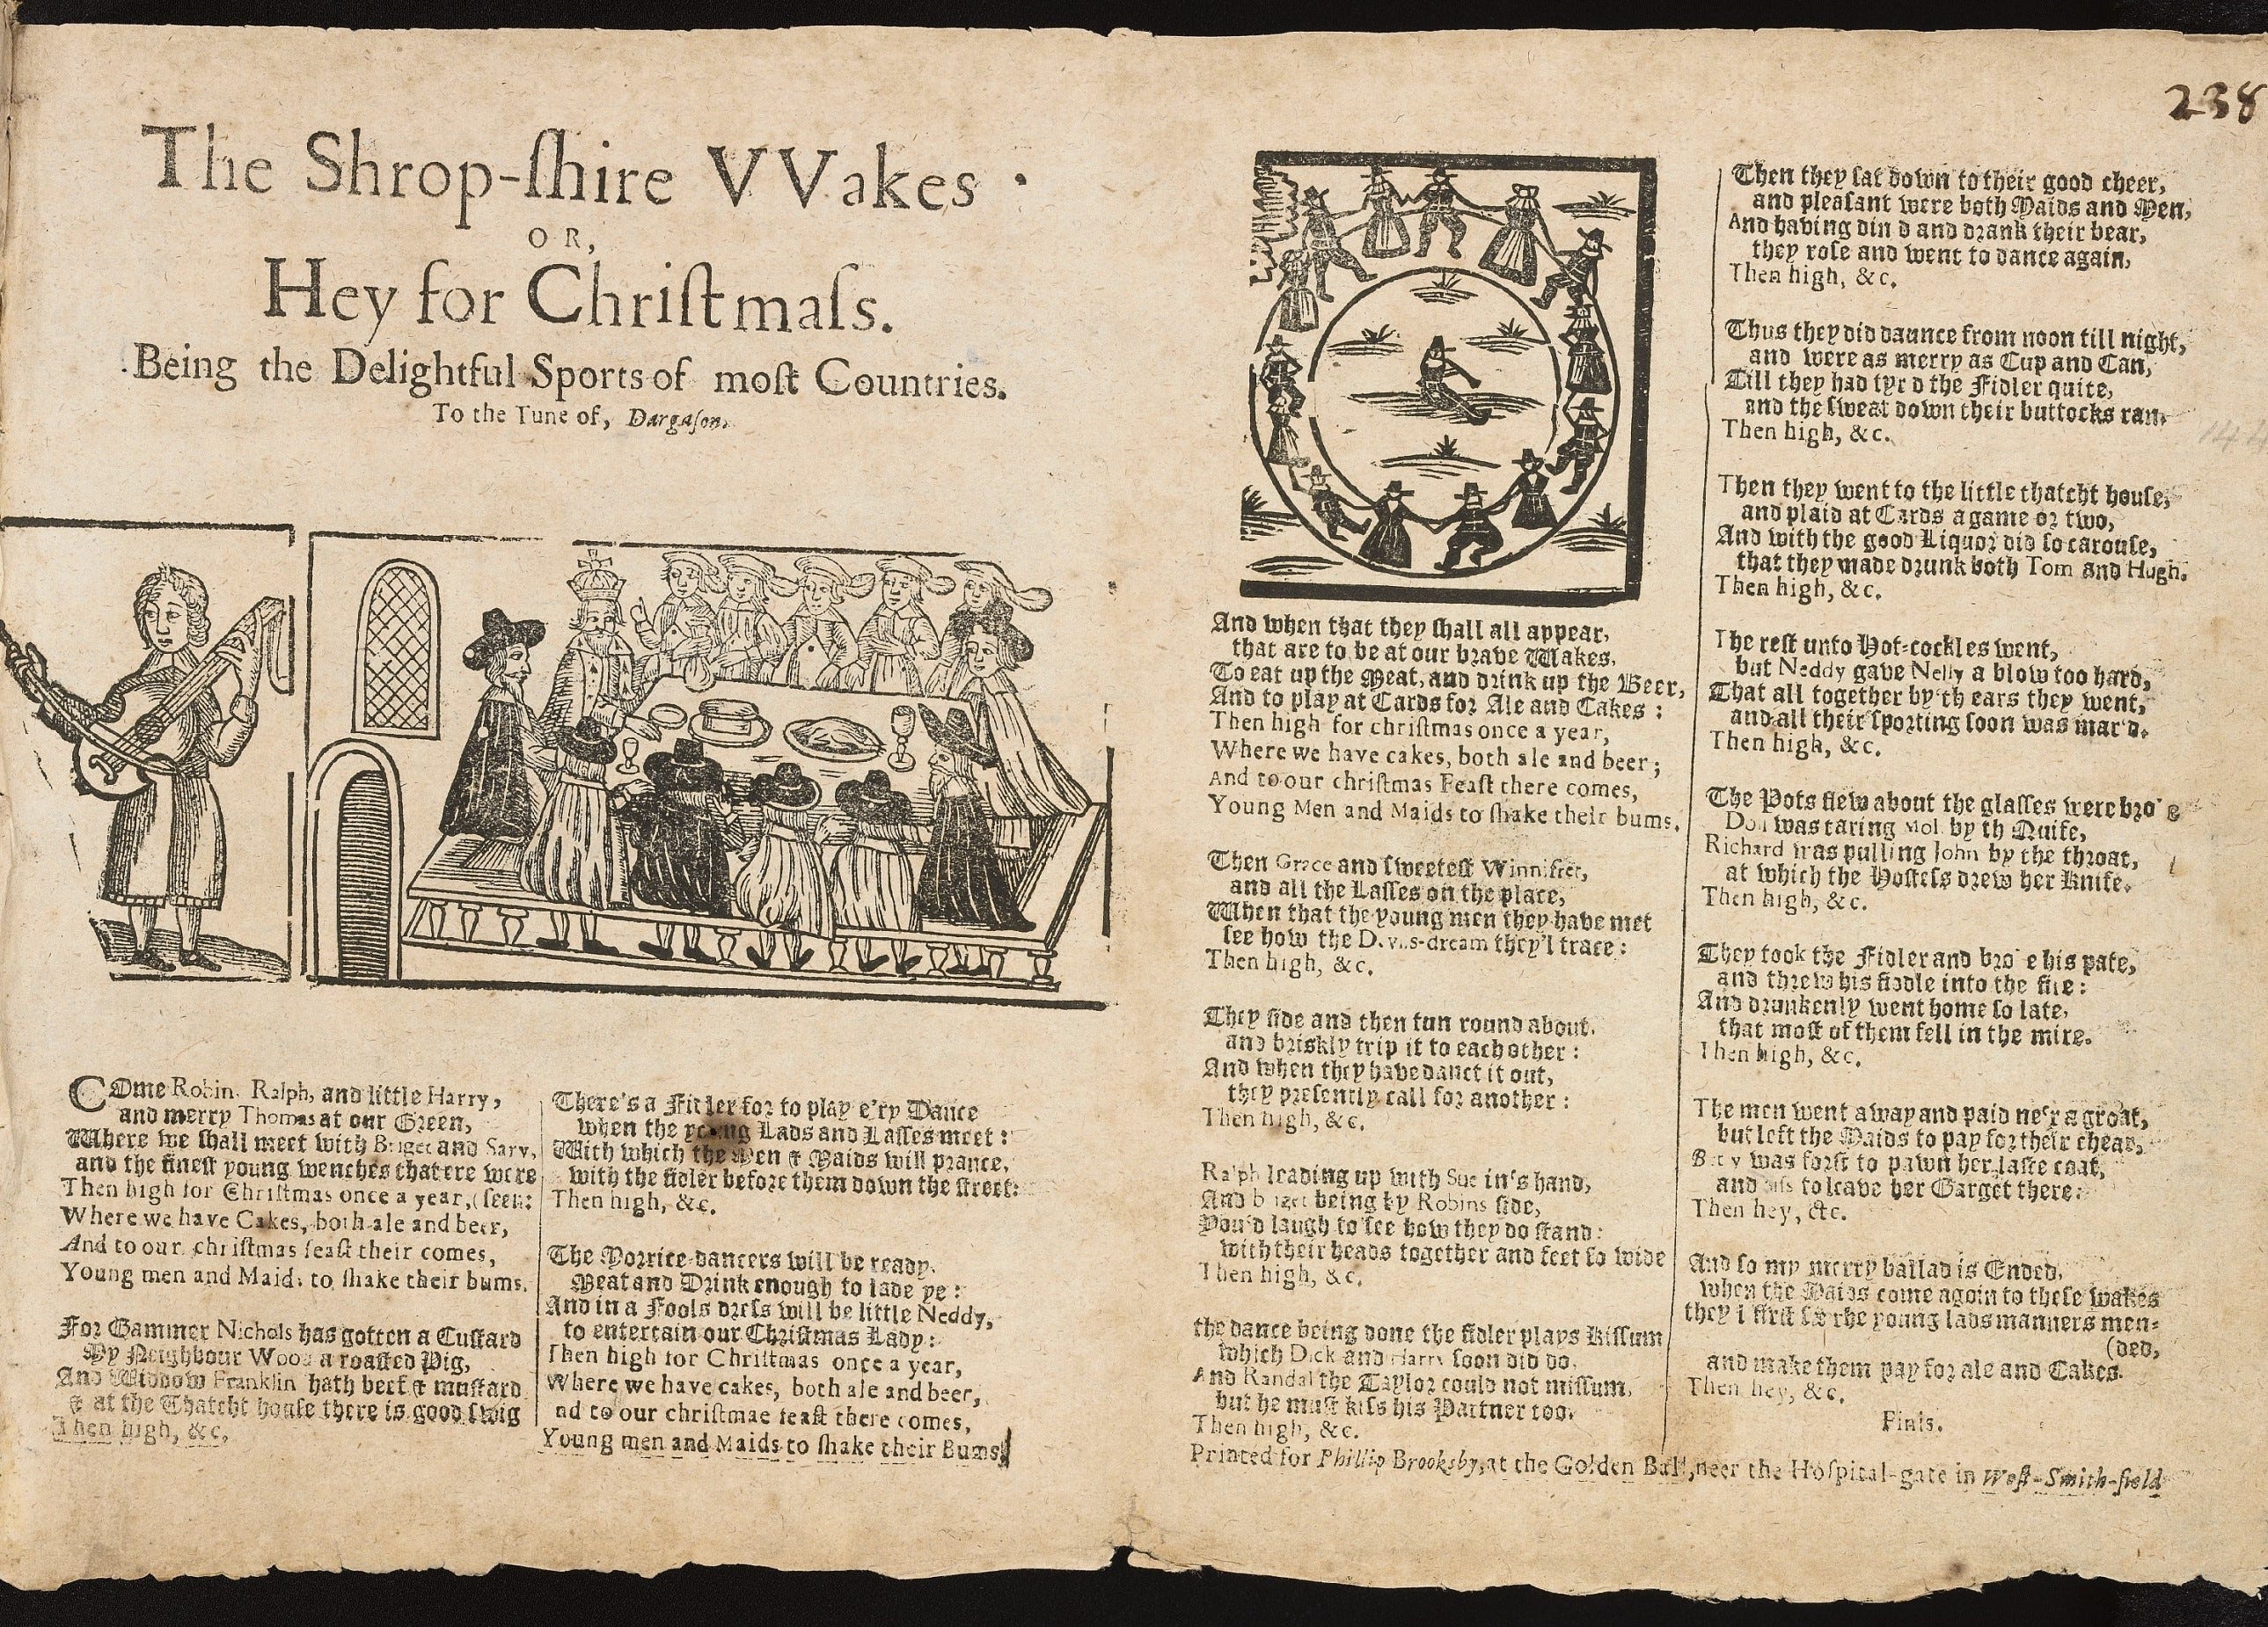 238
The Shrop-ſhire VVakes
OR,
Hey for Chriſtmaſs.
Being the Delightful Sports of moſt Countries.
To the Tune of, Dargaſon.
COme Robin, Ralph, and little Harry,
and merry Thomas at our Green,
Where we ſhall meet with Briget and Sary,
and the fineſt young wenches that ere were
Then high for Chriſtmas once a year, (ſeen:
Where we have Cakes, both ale and beer,
And to our chriſtmas feaſt their comes,
Young men and Maids to ſhake their bums.
For Gammer Nichols has gotten a Cuſtard
My Neighbour Wood a roaſted Pig,
And Widdow Franklin hath beef & muſtard
& at the Thatcht houſe there is good ſwig
Then high, &c.
There's a Fidler for to play e'ry Dance
when the young Lads and Laſſes meet:
With which the Men & Maids will prance,
with the fidler before them down the ſtreet:
Then high, &c.
The Morrice-dancers will be ready,
Meat and Drink enough to lade ye:
And in a Fools dreſs will be little Neddy,
to entertain our Chriſtmas Lady:
Then high for Chriſtmas once a year,
Where we have cakes, both ale and beer,
nd to our chriſtmae feaſt there comes,
Young men and Maids to ſhake their Bums.
And when that they ſhall all appear,
that are to be at our brave Wakes,
To eat up the Meat, and drink up the Beer,
And to play at Cards for Ale and Cakes:
Then high for chriſtmas once a year,
Where we have cakes, both ale and beer;
And to our chriſtmas Feaſt there comes,
Young Men and Maids to ſhake their bums.
Then Grace and ſweeteſt Winnifret,
and all the Laſſes on the place,
When that the young men they have met
ſee how the they'l trace:
Then high, &c.
They ſide and then tun round about,
and briskly trip it to each other:
And when they have danct it out,
they preſently call for another:
Then high, &c.
Ralph leading up with Sue in's hand,
And being by Robins ſide,
You'd laugh to ſee how they do ſtand:
with their heads together and feet ſo wide
Then high, &c.
the dance being done the fidler plays Kiſſum
which Dick and Harry ſoon did do,
And Randal the Taylor could not miſſum,
but he muſt kiſs his Partner too.
Then high, &c.
Then they ſat down to their good cheer,
and pleaſant were both Maids and Men,
And having din'd and drank their bear,
they roſe and went to dance again,
Then high, &c.
Thus they did daunce from noon till night,
and were as merry as Cup and Can,
Till they had tyr'd the Fidler quite,
and the ſweat down their buttocks ran.
Then high, &c.
Then they went to the little thatcht houſe,
and plaid at Cards a game or two,
And with the good Liquor did ſo carouſe,
that they made drunk both Tom and Hugh.
Then high, &c.
The reſt unto Hot-cockles went,
but Neddy gave Nelly a blow too hard,
That all together by'th ears they went,
and all their ſporting ſoon was mar'd.
Then high, &c.
The Pots flew about the glaſſes were
Doll was taring Mol by th Quife,
Richard was pulling John by the throat,
at which the Hoſteſs drew her Knife.
Then high, &c.
They took the Fidler and his pate,
and threw his fiddle into the fire:
And drunkenly went home ſo late,
that moſt of them fell in the mire.
Then high, &c.
The men went away and paid ne'r a groat,
but left the Maids to pay for their chear,
was forſt to pawn her laſte coat,
and to leave her Garget there:
Then hey, &c.
And ſo my merry ballad is Ended,
when the Maids come again to theſe wakes
they'l firſt ſee the young lads manners men-
(ded,
and make them pay for ale and Cakes.
Then hey, &c.
Finis.
Printed for Phillip Brooksby, at the Golden Ball, neer the Hoſpital-gate in Weſt-Smith-field